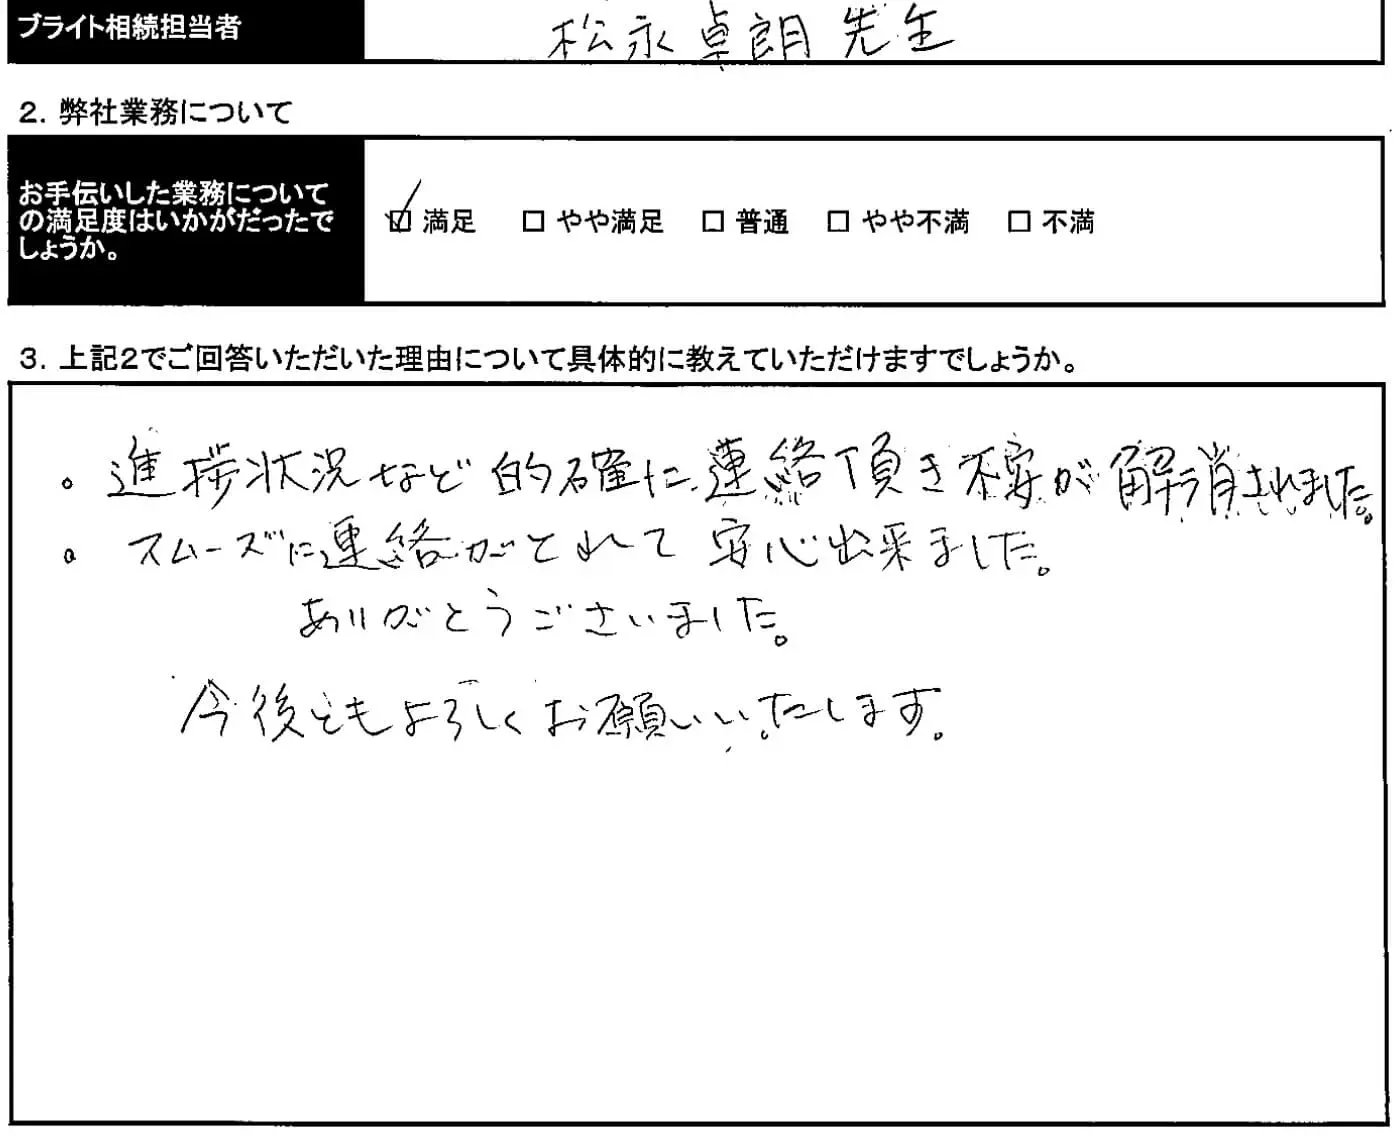 ブライト相続担当者
松永卓朗先生
2. 弊社業務について
お手伝いした業務について
の満足度はいかがだったで
しょうか。
☑ 満足 □ やや満足 □ 普通 □ やや不満 □ 不満
3. 上記2でご回答いただいた理由について具体的に教えていただけますでしょうか。
。進捗状況など的確に連絡頂き不安が解消されました。
。スムーズに連絡がとれて安心出来ました。
ありがとうございました。
今後ともよろしくお願いいたします。